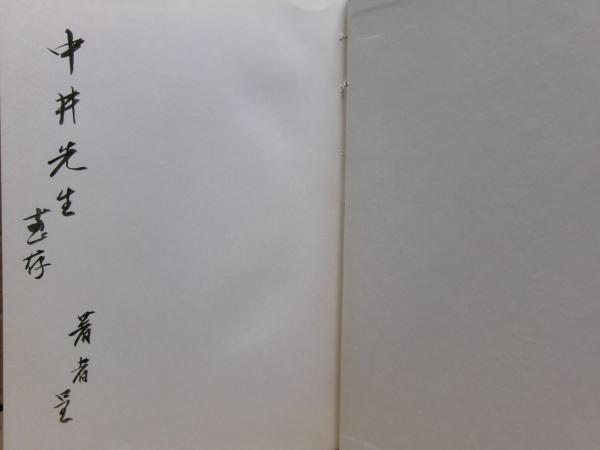 中井先生
恵存
著者呈